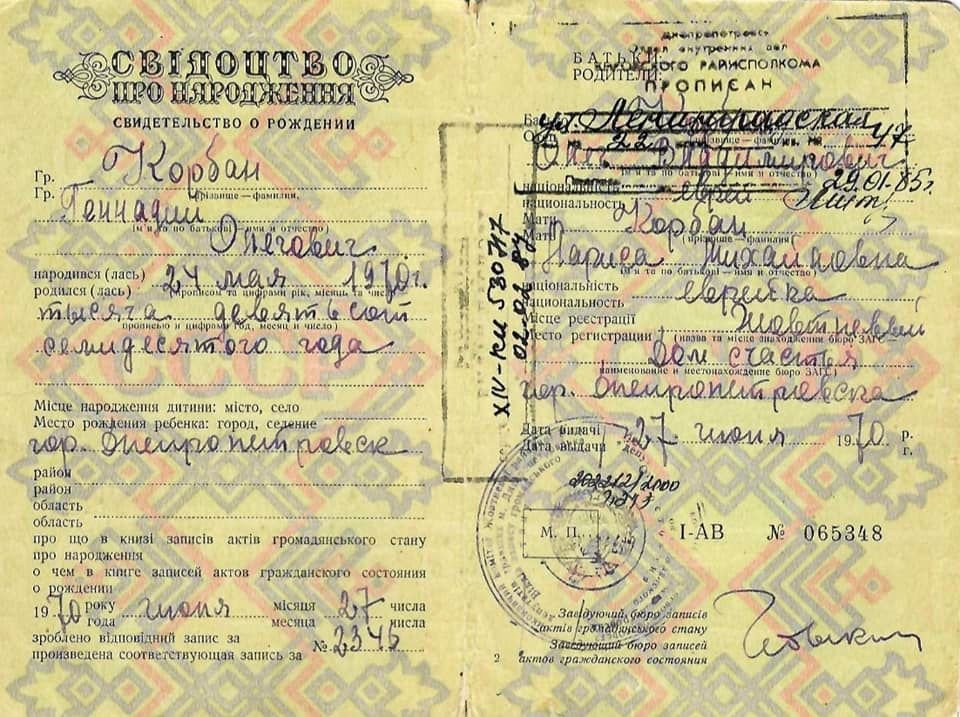 СВІДОЦТВО
ПРО НАРОДЖЕННЯ
СВИДЕТЕЛЬСТВО О РОЖДЕНИИ
Гр. Корбан
Гр. (прізвище — фамилия,
Геннадий
(м'я та по батькові — имя и отчество)
Олегович
народився (лась) 24 мая 1970 г.
родился (лась) (прописом та цифрами рік, місяць та число)
тысяча девятьсот
прописью и цифрами год, месяц и число)
семидесятого года
Місце народження дитини: місто, село
Место рождения ребенка: город, селение
гор. Днепропетровск
район
район
область
область
про що в книзі записів актів громадянського стану
про народження
о чем в книге записей актов гражданского состояния
о рождении
1970 року июня місяця 27 числа
года месяца числа
зроблено відповідний запис за № 2345
произведена соответствующая запись за
Днепропетровск
отдел внутренних дел
РАЙИСПОЛКОМА
ПРОПИСАН
БАТЬКИ:
РОДИТЕЛИ:
ул. Ленинградская
22 47
Олег Владимирович
(м'я та по батькові — имя и отчество)
29.01.85г.
національність еврей
национальность
Мати Корбан
Мать (прізвище — фамилия)
Лариса Михайловна
(м'я та по батькові — имя и отчество)
національність еврейка
национальность
XIV-КИ 580747
02.02.87
Місце реєстрації Жовтневий
Место регистрации (назва та місце знаходження бюро ЗАГС—
Дом счастья
наименование и местонахождение бюро ЗАГС)
гор. Днепропетровска
Дата видачі 27 июня 1970 р.
Дата выдачи г.
М. П.
I-АВ № 065348
Завідуючий бюро записів
актів громадянського стану
Заведующий бюро записей
актов гражданского состояния
2